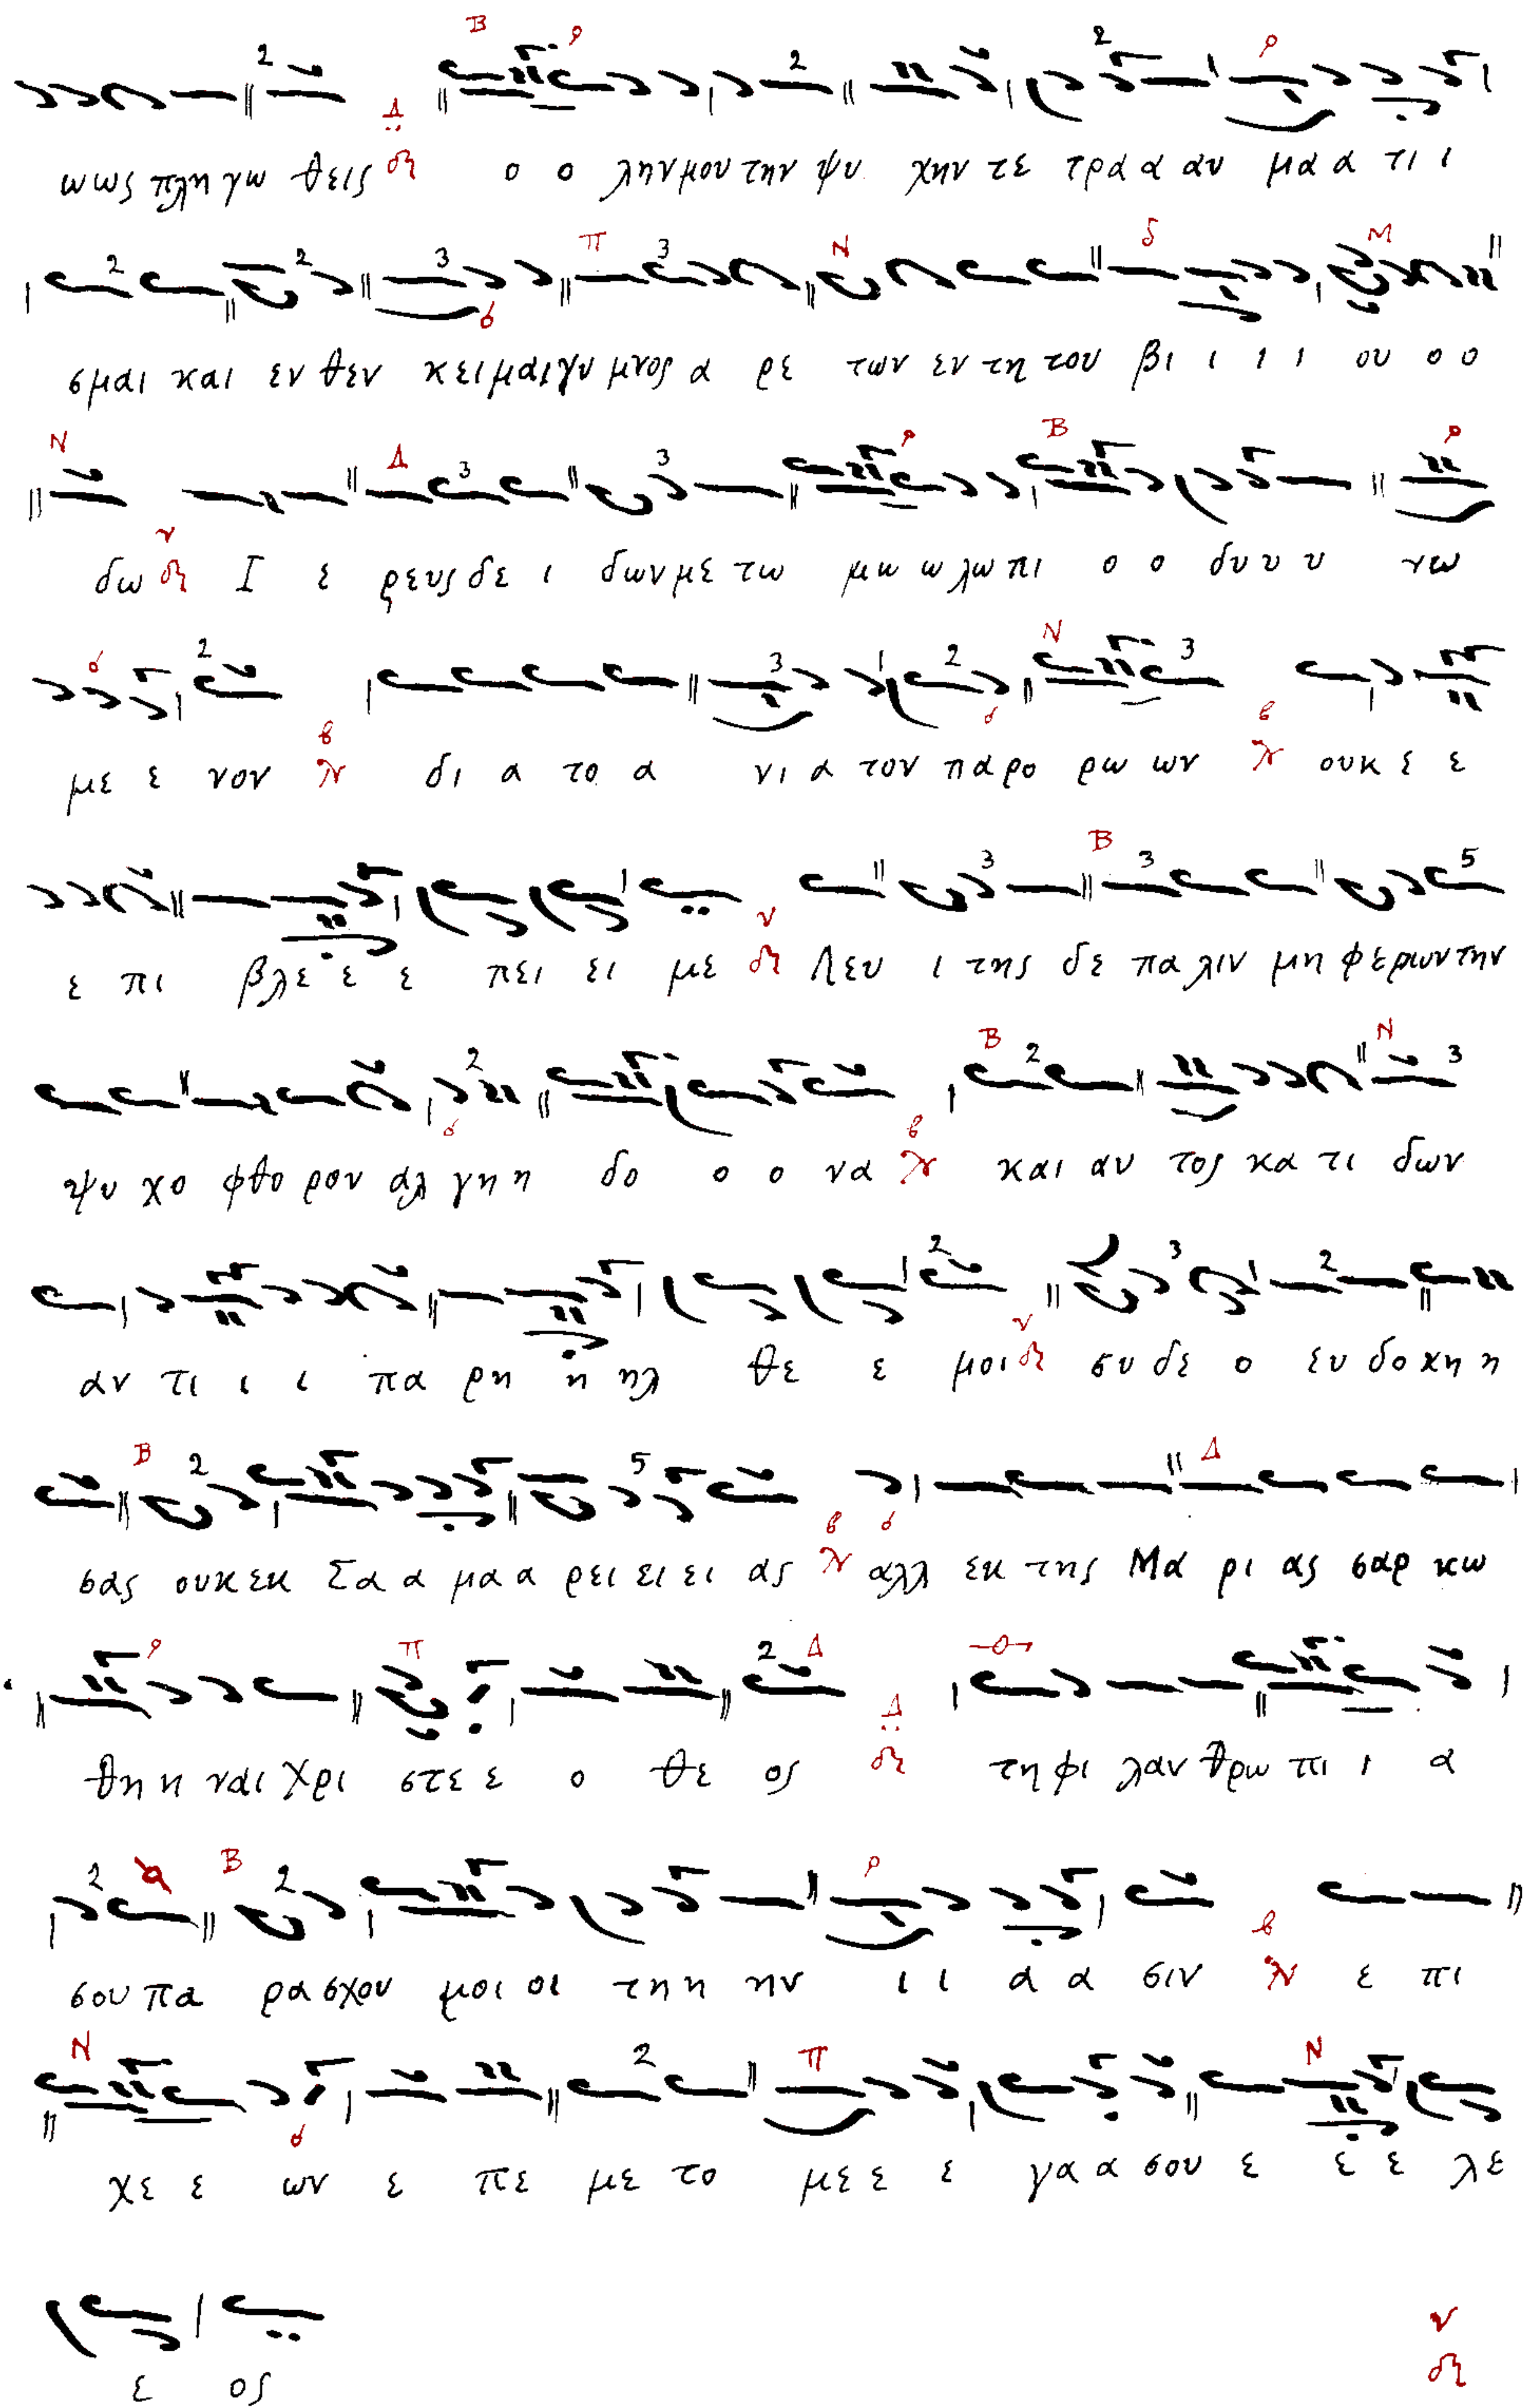 ω ως πλη γω θεις ο ο λην μου την ψυ χην τε τρα α α αυ μα α τι ι
σμαι και εν θεν κει μαι γυ μνος α ρε των εν τη του βι ι ι ι ου ο ο
δω Ι ε ρευς δε ι δων με τω μω ω λω πι ο ο δυ υ υ νω
με ε νον δι α το α νι α τον πα ρο ρω ων ουκ ε ε
ε πι βλε ε ε πει ει με Λευ ι της δε πα λιν μη φε ρων την
ψυ χο φθο ρον αλ γη η δο ο ο να και αυ τος κα τι δων
αν τι ι ι πα ρη η ηλ θε ε μοι συ δε ο ευ δο κη η
σας ουκ εκ Σα α μα α ρει ει ει ας αλλ εκ της Μα ρι ας σαρ κω
θη η ναι Χρι στε ε ο θε ος τη φι λαν θρω πι ι α
σου πα ρα σχου μοι οι τη η ην ι ι α α σιν ε πι
χε ε ων ε πε με το με ε ε γα α σου ε ε ε λε
ε ος